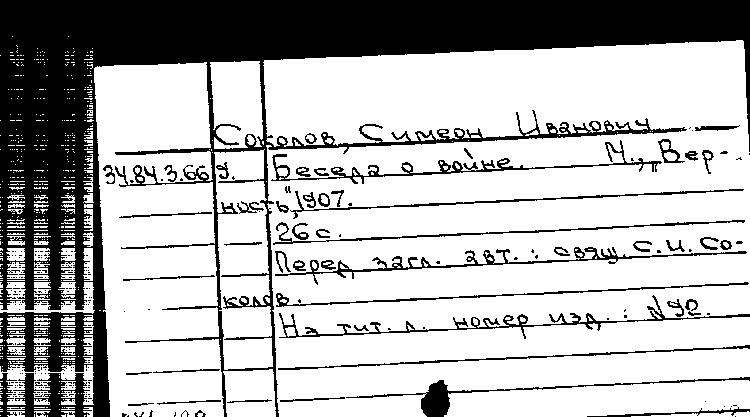 Соколов, Симеон Иванович
34.84.3.669. Беседа о войне. М., „Вер-
ность“, 1907.
26 с.
Перед загл. авт.: свящ. С. И. Со-
колов.
На тит. л. номер изд.: №92.